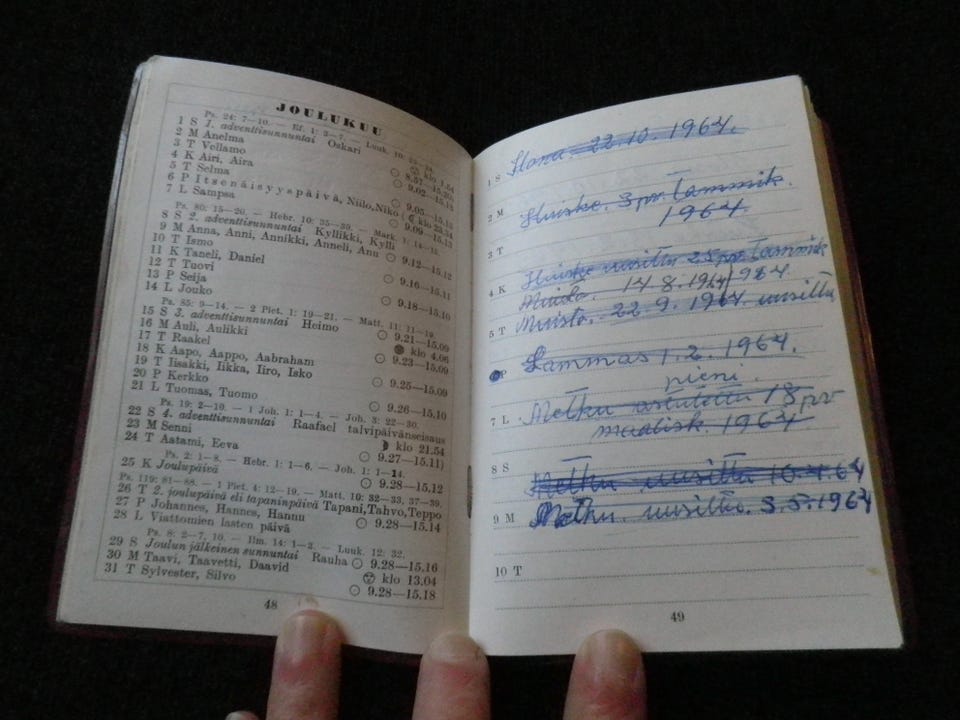 JOULUKUU
Ps. 24: 7—10. — Ef. 1: 3—7. — Luuk. 10: 23—24.
1 S 1. adventtisunnuntai Oskari klo 1.54
2 M Anelma 8.57—15.20
3 T Vellamo
4 K Airi, Aira 9.02—15.18
5 T Selma
6 P Itsenäisyyspäivä, Niilo, Niko 9.05—15.15
7 L Sampsa klo 23.34
9.09—15.13
Ps. 80: 15—20. — Hebr. 10: 35—39. — Mark. 1: 14—15.
8 S 2. adventtisunnuntai Kyllikki, Kylli
9 M Anna, Anni, Annikki, Anneli, Anu 9.12—15.12
10 T Ismo
11 K Taneli, Daniel 9.16—15.11
12 T Tuovi
13 P Seija
14 L Jouko 9.18—15.10
Ps. 85: 9—14. — 2 Piet. 1: 19—21. — Matt. 11: 11—19.
15 S 3. adventtisunnuntai Heimo 9.21—15.09
16 M Auli, Aulikki klo 4.06
17 T Raakel 9.23—15.09
18 K Aapo, Aappo, Aabraham
19 T Iisakki, Iikka, Iiro, Isko 9.25—15.09
20 P Kerkko
21 L Tuomas, Tuomo 9.26—15.10
Ps. 19: 2—10. — 1 Joh. 1: 1—4. — Joh. 3: 22—30.
22 S 4. adventtisunnuntai Raafael talvipäivänseisaus
23 M Senni klo 21.54
24 T Aatami, Eeva 9.27—15.11
Ps. 2: 1—8. — Hebr. 1: 1—6. — Joh. 1: 1—14.
25 K Joulupäivä 9.28—15.12
Ps. 119: 81—88. — 1 Piet. 4: 12—19. — Matt. 10: 32—33, 37—39.
26 T 2. joulupäivä eli tapaninpäivä Tapani, Tahvo, Teppo
27 P Johannes, Hannes, Hannu 9.28—15.14
28 L Viattomien lasten päivä
Ps. 8: 2—7, 10. — Ilm. 14: 1—3. — Luuk. 12: 32.
29 S Joulun jälkeinen sunnuntai Rauha 9.28—15.16
30 M Taavi, Taavetti, Daavid klo 13.04
31 T Sylvester, Silvo 9.28—15.18
48
1 S 22.10.1964.
2 M Huiske. 3 pv. tammik.
1964.
3 T
4 K Huiske uusittu 25 pv. tammik
Muisto. 14.8.1964 1964.
5 T Muisto. 22.9.1964. uusittu
P Lammas 1.2.1964.
pieni.
7 L Metku astutettu 18 pv
maalisk. 1964
8 S Metku uusittu 10.4.64
9 M Metku. uusittu. 3.5.1964
10 T
49